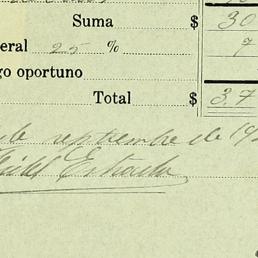 Suma $ 30
eral 25 % 7
go oportuno
Total $ 37
de septiembre de 19
Estrada